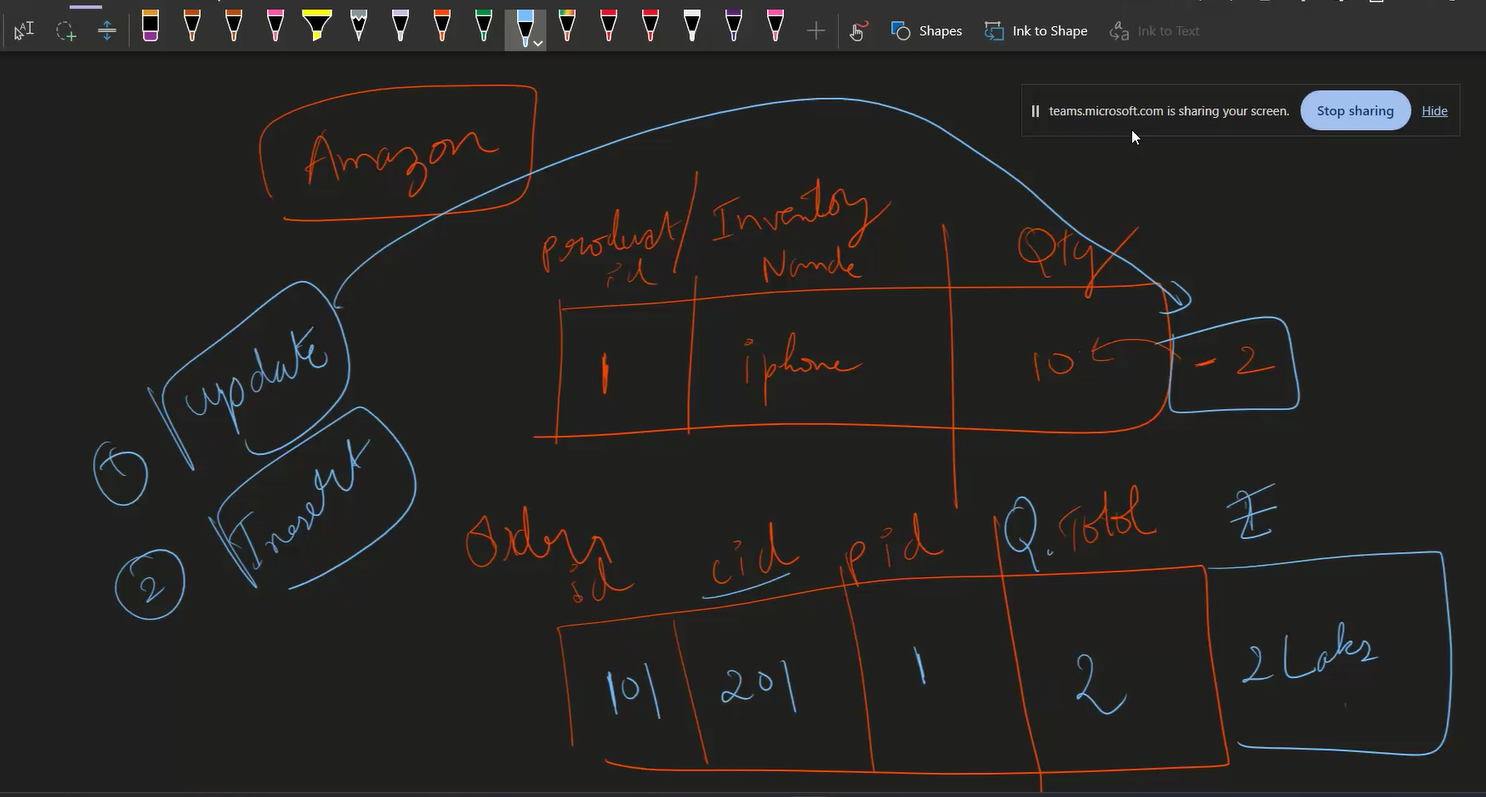 Shapes
Ink to Shape
Ink to Text
teams.microsoft.com is sharing your screen.
Stop sharing
Hide
Amazon
Product id / Inventory
Qty
1 iphone 10 - 2
update
1
Insert
2
Orders
id cid pid Q. Total ₹
101 201 1 2 2 Laks